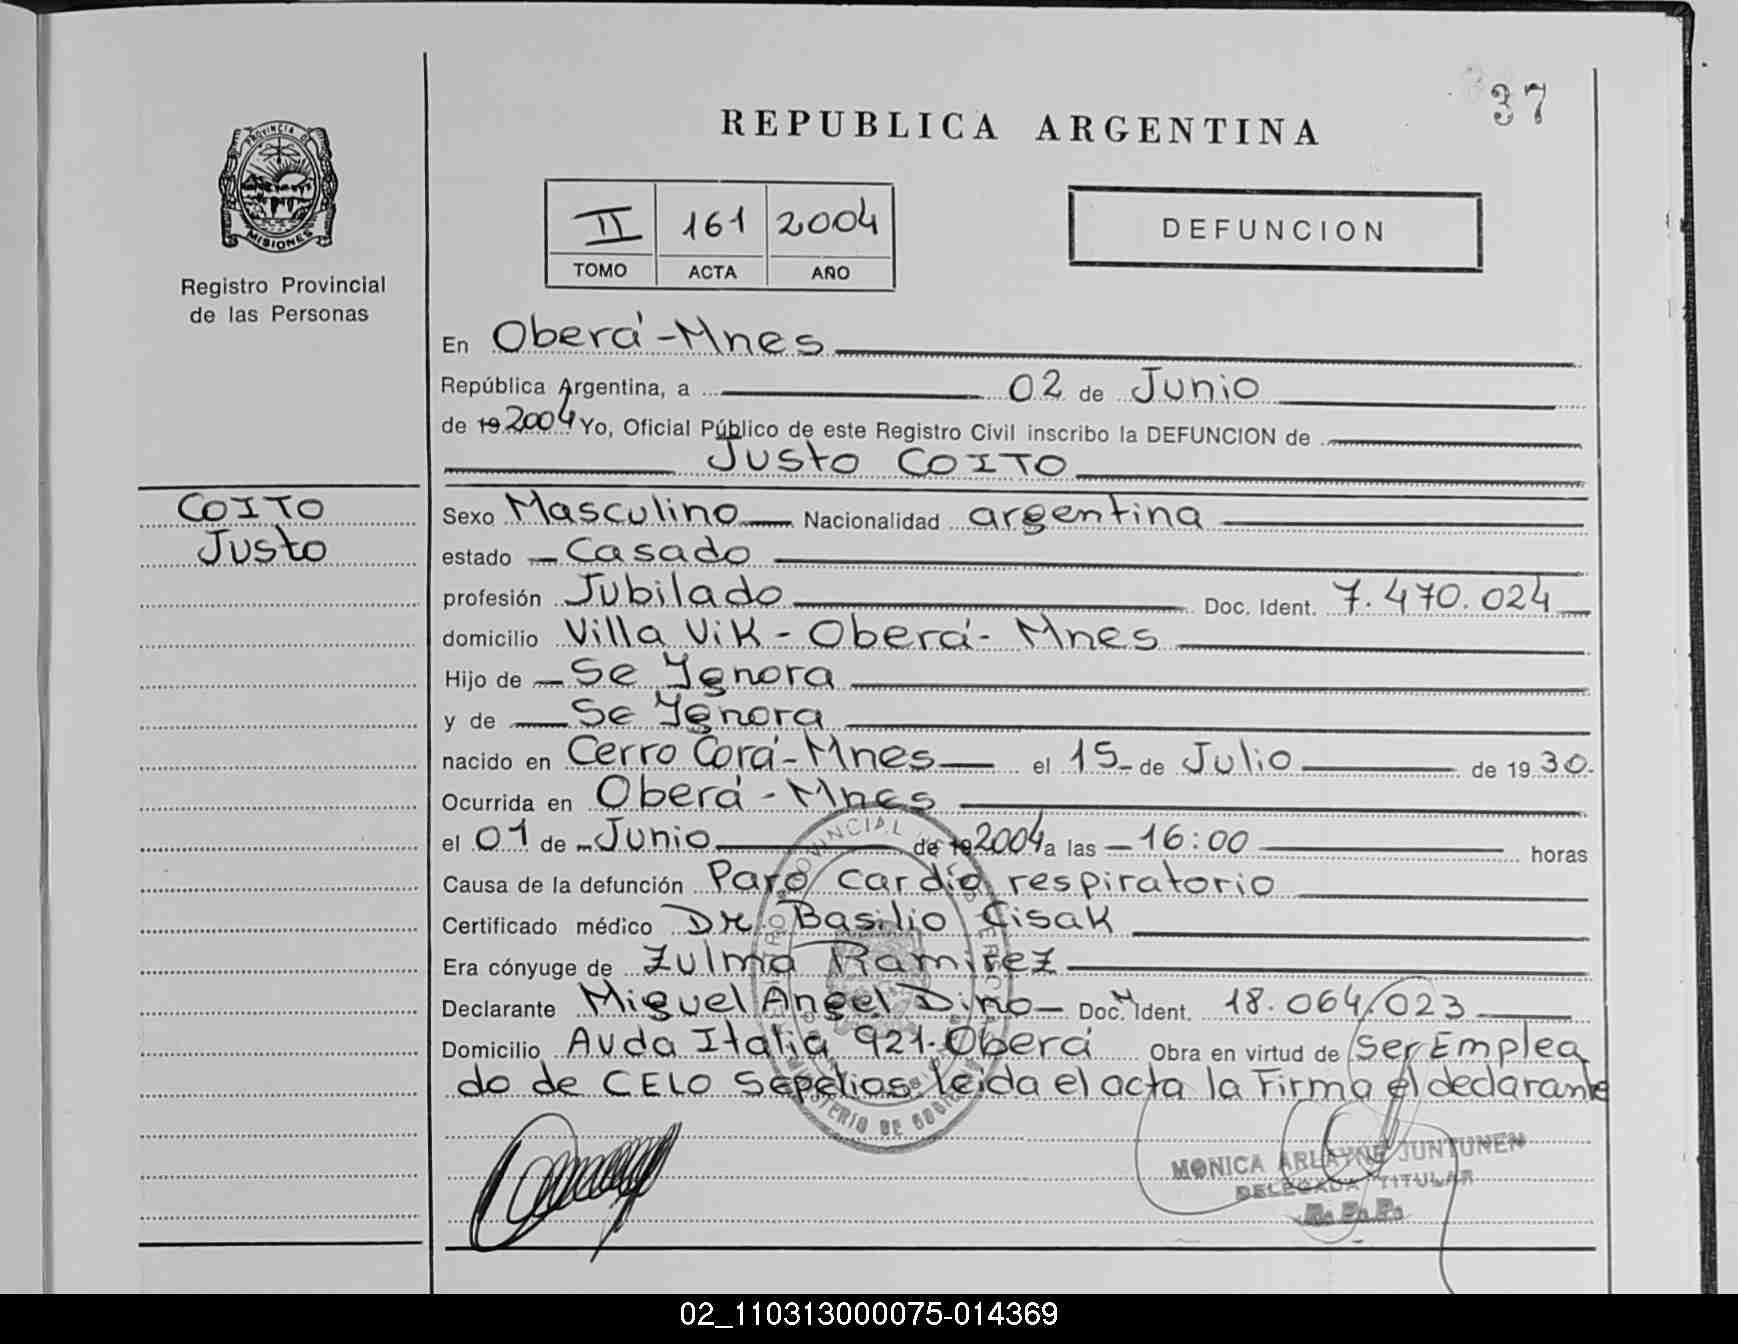 37
REPUBLICA ARGENTINA
PROVINCIA DE
MISIONES
Registro Provincial
de las Personas
II 161 2004
TOMO ACTA AÑO
DEFUNCION
En Oberá-Mnes
República Argentina, a 02 de Junio
de 19 2004 Yo, Oficial Público de este Registro Civil inscribo la DEFUNCION de
Justo COITO
COITO
Justo
Sexo Masculino Nacionalidad argentina
estado Casado
profesión Jubilado Doc. Ident. 7.470.024
domicilio Villa Vik - Oberá - Mnes
Hijo de Se Ignora
y de Se Ignora
nacido en Cerro Corá-Mnes el 15 de Julio de 1930.
Ocurrida en Oberá - Mnes
el 01 de Junio de 19 2004 a las 16:00 horas
Causa de la defunción Paro cardio respiratorio
Certificado médico Dr. Basilio Cisak
Era cónyuge de Zulma Ramirez
Declarante Miguel Angel Dino Doc. M Ident. 18.064.023
Domicilio Avda Italia 921. Oberá Obra en virtud de Ser Emplea
do de CELO Sepelios. leida el acta la Firma el declarante
MONICA ARLAYNE JUNTUNEN
DELEGADA TITULAR
R. P. P.
02_110313000075-014369